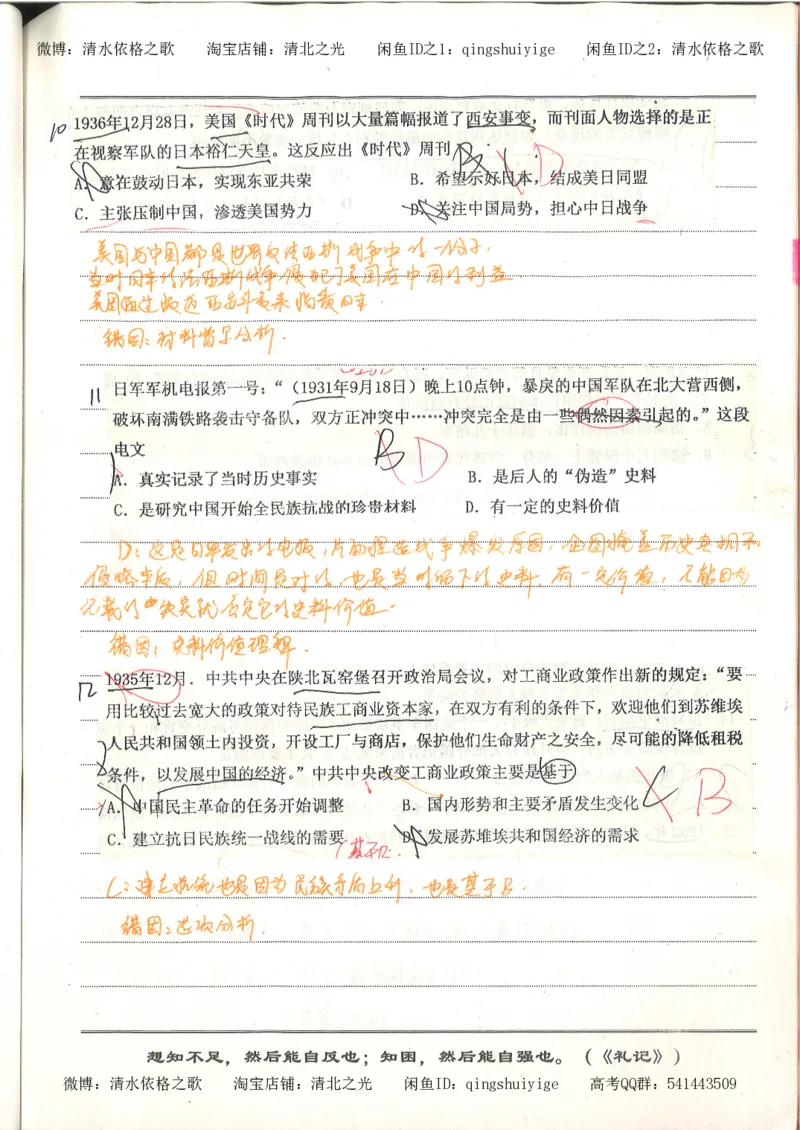 微博：清水依格之歌 淘宝店铺：清北之光 闲鱼ID之1：qingshuiyige 闲鱼ID之2：清水依格之歌
10 1936年12月28日，美国《时代》周刊以大量篇幅报道了西安事变，而刊面人物选择的是正
在视察军队的日本裕仁天皇。这反应出《时代》周刊 B D
A. 意在鼓动日本，实现东亚共荣 B. 希望示好日本，结成美日同盟
C. 主张压制中国，渗透美国势力 D. 关注中国局势，担心中日战争
美国与中国都是世界反法西斯战争中的一份子，
当时日本的法西斯战争侵犯了美国在中国的利益
美国通过报道西安事变来指责日本
错因：材料背景分析.
11 日军军机电报第一号：“（1931年9月18日）晚上10点钟，暴戾的中国军队在北大营西侧，
破坏南满铁路袭击守备队，双方正冲突中……冲突完全是由一些偶然因素引起的。”这段
电文 B D
A. 真实记录了当时历史事实 B. 是后人的“伪造”史料
C. 是研究中国开始全民族抗战的珍贵材料 D. 有一定的史料价值
D：这是日军发出的电报，片面捏造战争爆发原因，企图掩盖历史真相和
侵略本质，但时间是对的，也是当时留下的史料，有一定价值，不能因为
记载的失实就否定它的史料价值.
错因：史料价值理解.
12 1935年12月．中共中央在陕北瓦窑堡召开政治局会议，对工商业政策作出新的规定：“要
用比较过去宽大的政策对待民族工商业资本家，在双方有利的条件下，欢迎他们到苏维埃
人民共和国领土内投资，开设工厂与商店，保护他们生命财产之安全，尽可能的降低租税
条件，以发展中国的经济。”中共中央改变工商业政策主要是基于
A. 中国民主革命的任务开始调整 B. 国内形势和主要矛盾发生变化 C B
C. 建立抗日民族统一战线的需要 D. 发展苏堆埃共和国经济的需求
基于B.
C：建立抗统也是因为民族矛盾上升，也是基于B.
错因：选项分析.
想知不足，然后能自反也；知困，然后能自强也。（《礼记》）
微博：清水依格之歌 淘宝店铺：清北之光 闲鱼ID：qingshuiyige 高考QQ群：541443509